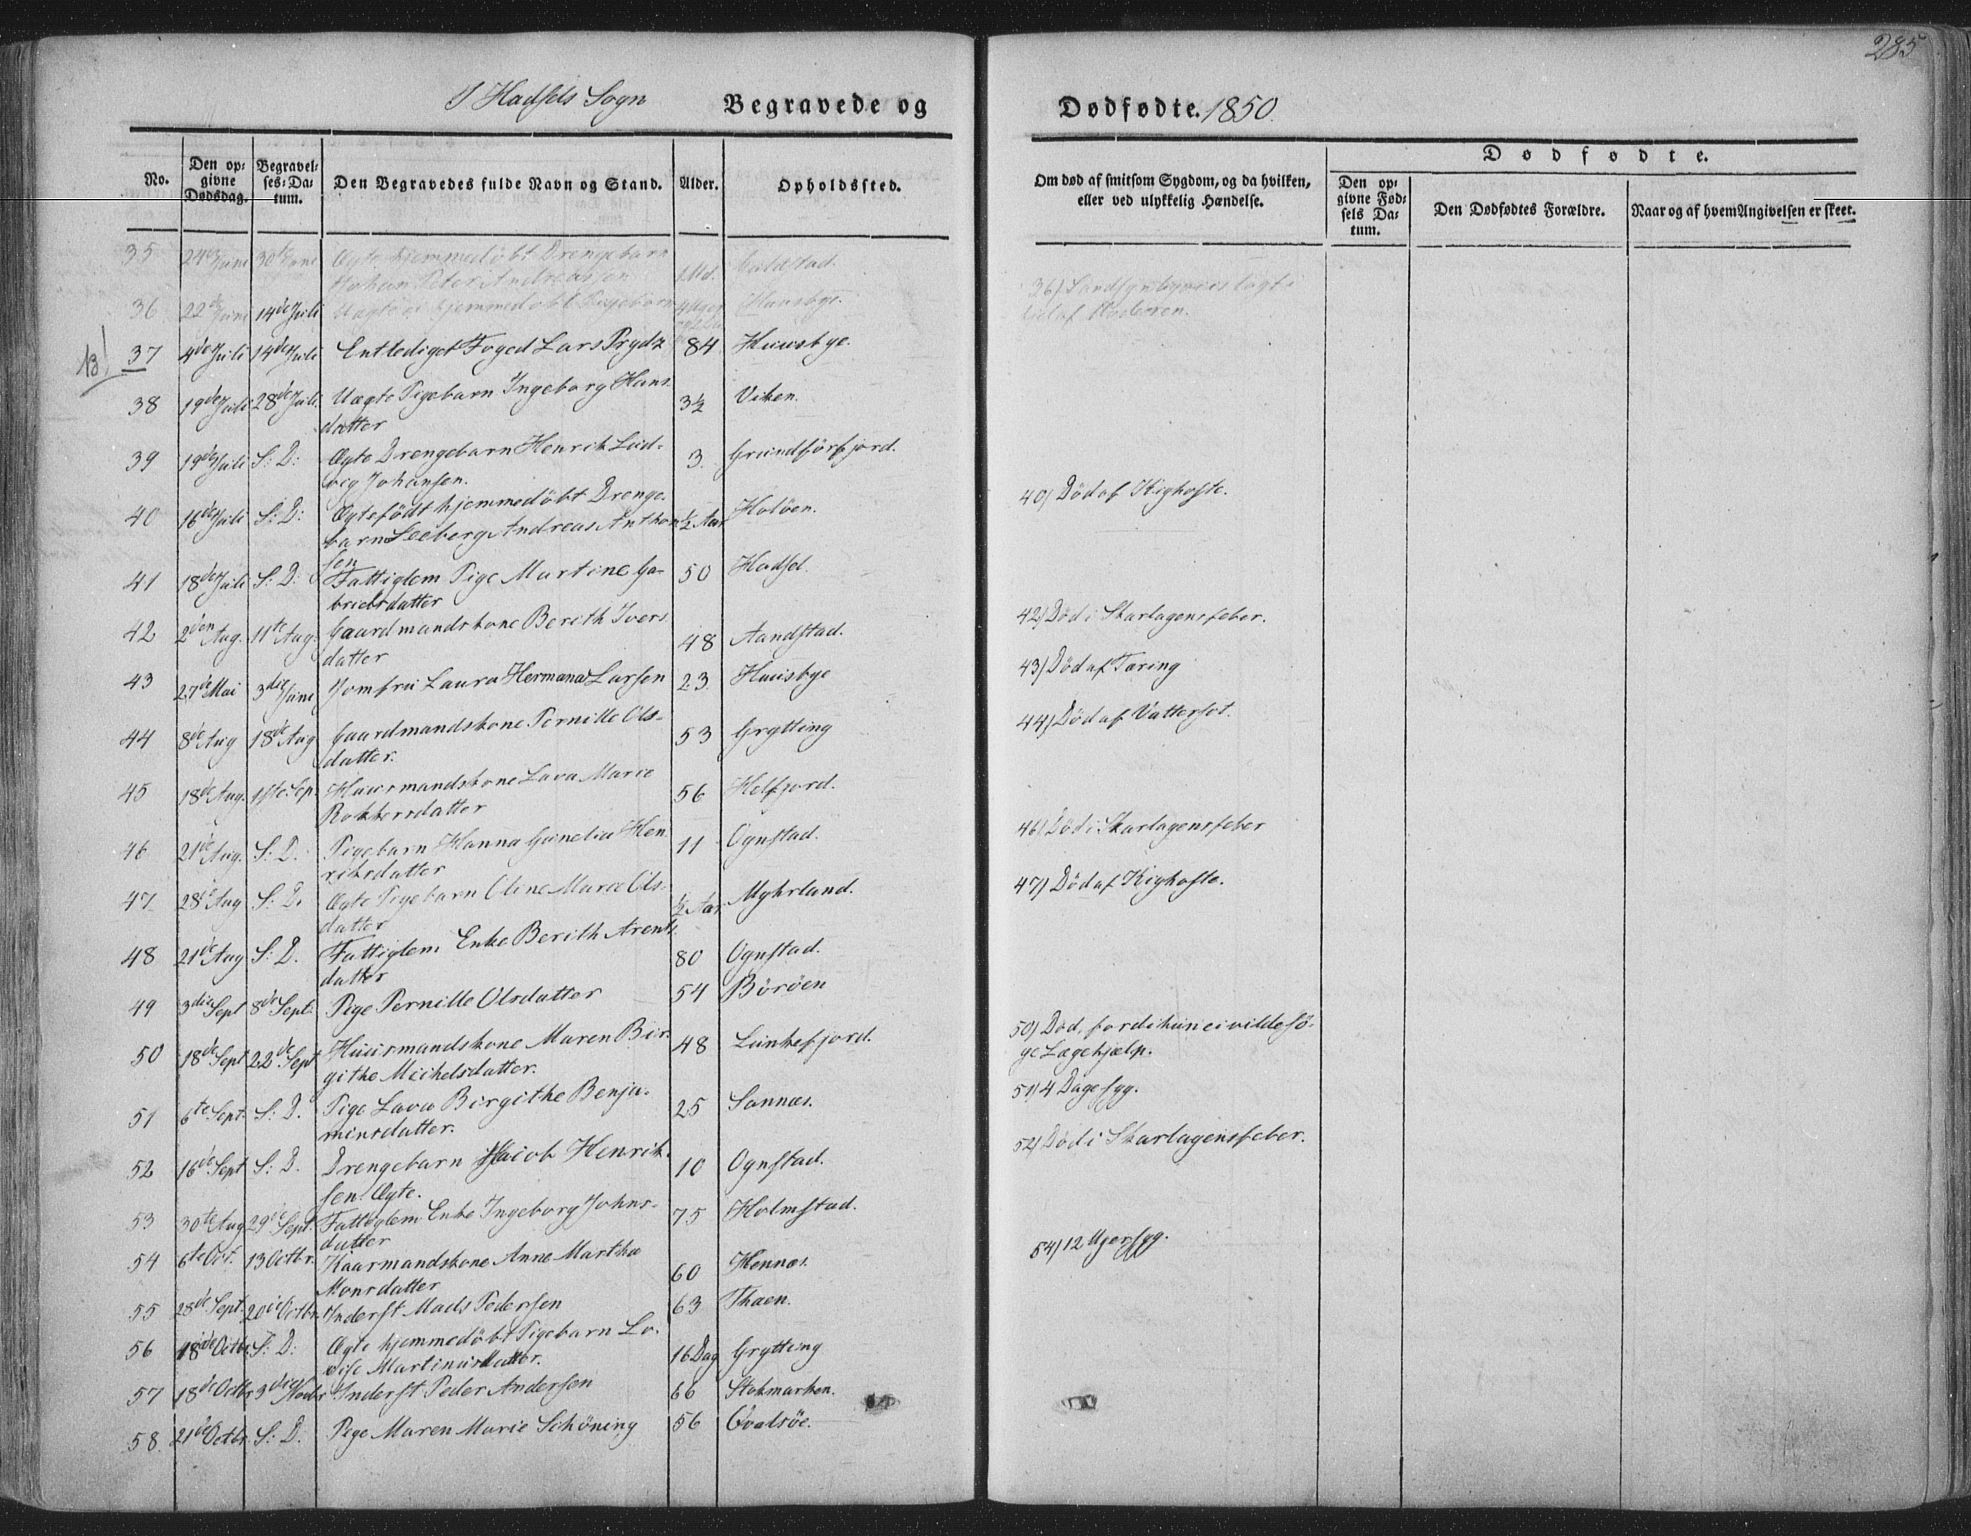 285
I Hadsels Sogn Begravede og Dødfødte. 1850.
No. Den opgivne Dødsdag. Begravelses-Datum. Den Begravedes fulde Navn og Stand. Alder. Opholdssted.
Om død af smitsom Sygdom, og da hvilken, eller ved ulykkelig Hændelse.
Dødfødte.
Den opgivne Fødsels Datum. Den Dødfødtes Forældre. Naar og af hvem Angivelsen er skeet.
35 24de Juni 30te Juni Ægte hjemmedøbt Drengebarn
Johan Peter Andreassen 1 Md.
36 22de Juni 14de Juli Uægte hjemmedøbt Pigebarn Huusbye.
37 4de Juli 14de Juli Entlediget Foged Lars Prydz 84 Huusbye.
38 19de Juli 28de Juli Uægte Pigebarn Ingeborg Hans
datter 3½ Viken.
39 19de Juli S: D: Ægte Drengebarn Henrik Lud-
vig Johansen. 3. Grundförfjord.
40 16de Juli S: D: Ægtefödt hjemmedöbt Drenge-
barn Seeberg Andreas Anthon
sen ½ Aar Holöen.
41 18de Juli S: D: Fattiglem Pige Martine Ga-
brielsdatter 50 Hadsel.
42 2den Aug. 11te Aug. Gaardmandskone Berith Ivers
datter 48 Aandstad.
43 27de Mai 3die Juni Jomfru Laura Hermana Larsen 23 Huusbye
44 8de Aug 18de Aug Gaardmandskone Pernille Ols-
datter. 53 Grytting
45 18de Aug. 1ste Sep. Huusmandskone Lava Marie
Rokkersdatter 56 Helfjord.
46 21de Aug. S: D. Pigebarn Hanna Gunelia Hen
riksdatter 11 Ognstad.
47 28de Aug S: D. Ægte Pigebarn Oline Marie Ols-
datter ½ Aar Myhrland.
48 21de Aug S: D. Fattiglem Enke Berith Arents
datter 80 Ognstad.
49 3die Sept 8de Sept. Pige Pernille Olsdatter 54 Böröen
50 18de Sept 22de Sept Huusmandskone Maren Bir-
githe Michelsdatter. 48 Lunkefjord.
51 6te Sept. S: D. Pige Lava Birgithe Benja-
minsdatter. 25 Sannæs.
52 16de Sept S: D. Drengebarn Jacob Henrik-
sen Ægte. 10 Ognstad.
53 30te Aug 29de Sept. Fattiglem Enke Ingeborg Johns-
datter 75 Holmstad.
54 6te Oct. 13 Octbr. Kaarmandskone Anne Martha
Monsdatter 60 Hennæs.
55 28de Sept. 20de Octbr. Inderst Mads Pedersen 63 Thaen.
56 18de Octbr. S: D: Ægte hjemmedöbt Pigebarn Lo-
vise Martinusdatter. 16 Dag Grytting
57 18de Octbr 3die Novbr Inderst Peder Andersen 66 Stokmarken.
58. 21de Octbr. S: D. Pige Maren Marie Schöning 56 Qvalsöe.
40) Död af Kighoste.
42) Död i Skarlagensfeber.
43) Död af Tæring
44) Död af Vattersot.
46) Död i Skarlagensfeber
47) Död af Kighoste.
50) Död, fordi hun ei vilde sö-
ge Lægehjælp.
51) 4 Dage syg.
52) Död i Skarlagensfeber.
54) 12 Uger syg.